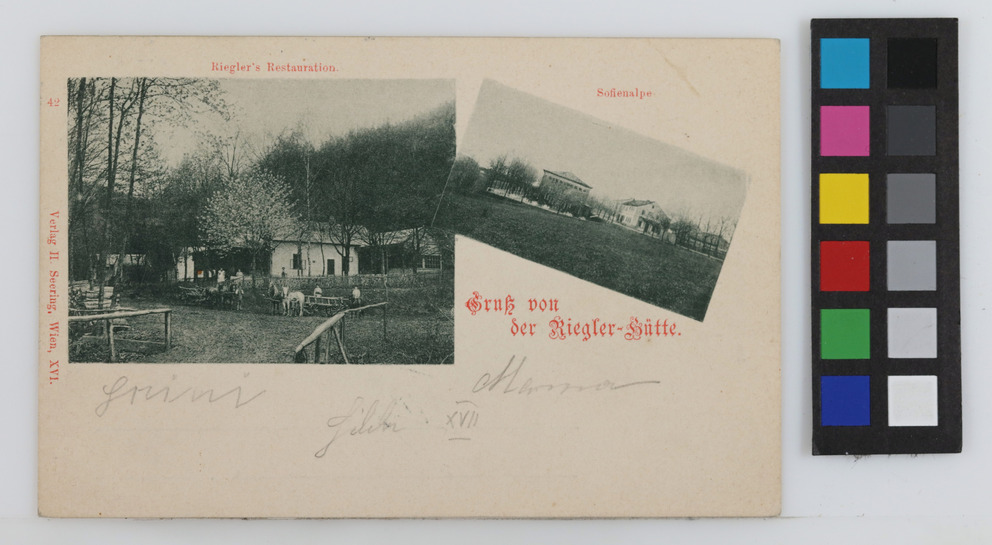 Riegler's Restauration.
Sofienalpe.
42
Verlag H. Seering, Wien, XVI.
Gruß von
der Riegler-Hütte.
Mama
XVII